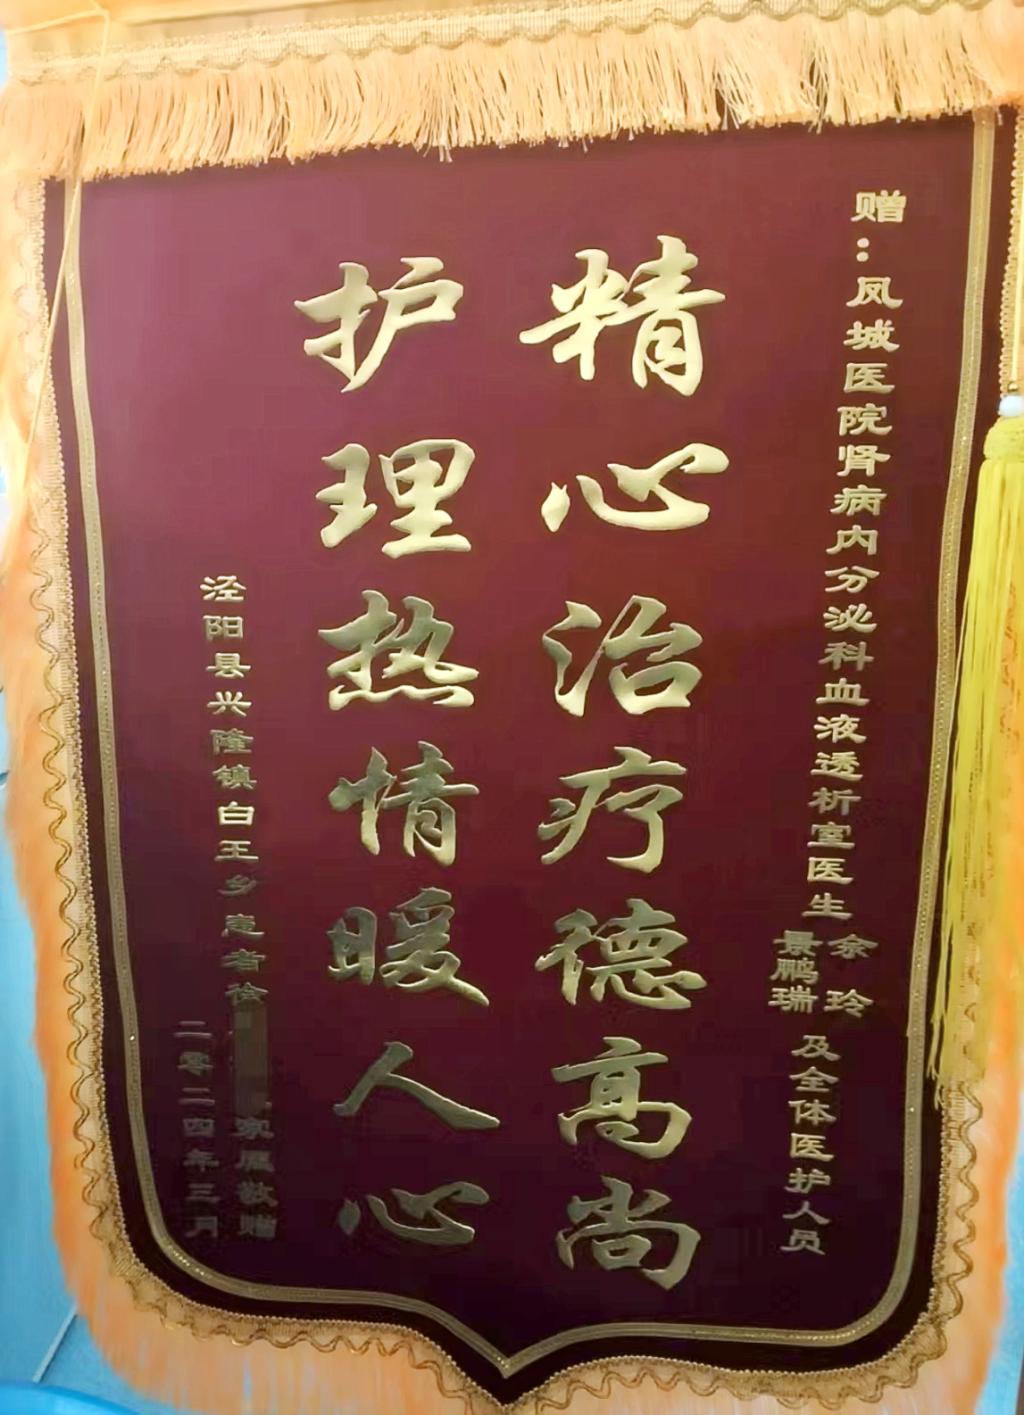 赠：凤城医院肾病内分泌科血液透析室医生
余玲
景鹏瑞
及全体医护人员
精心治疗德高尚
护理热情暖人心
泾阳县兴隆镇白王乡患者徐
家属敬赠
二零二四年三月